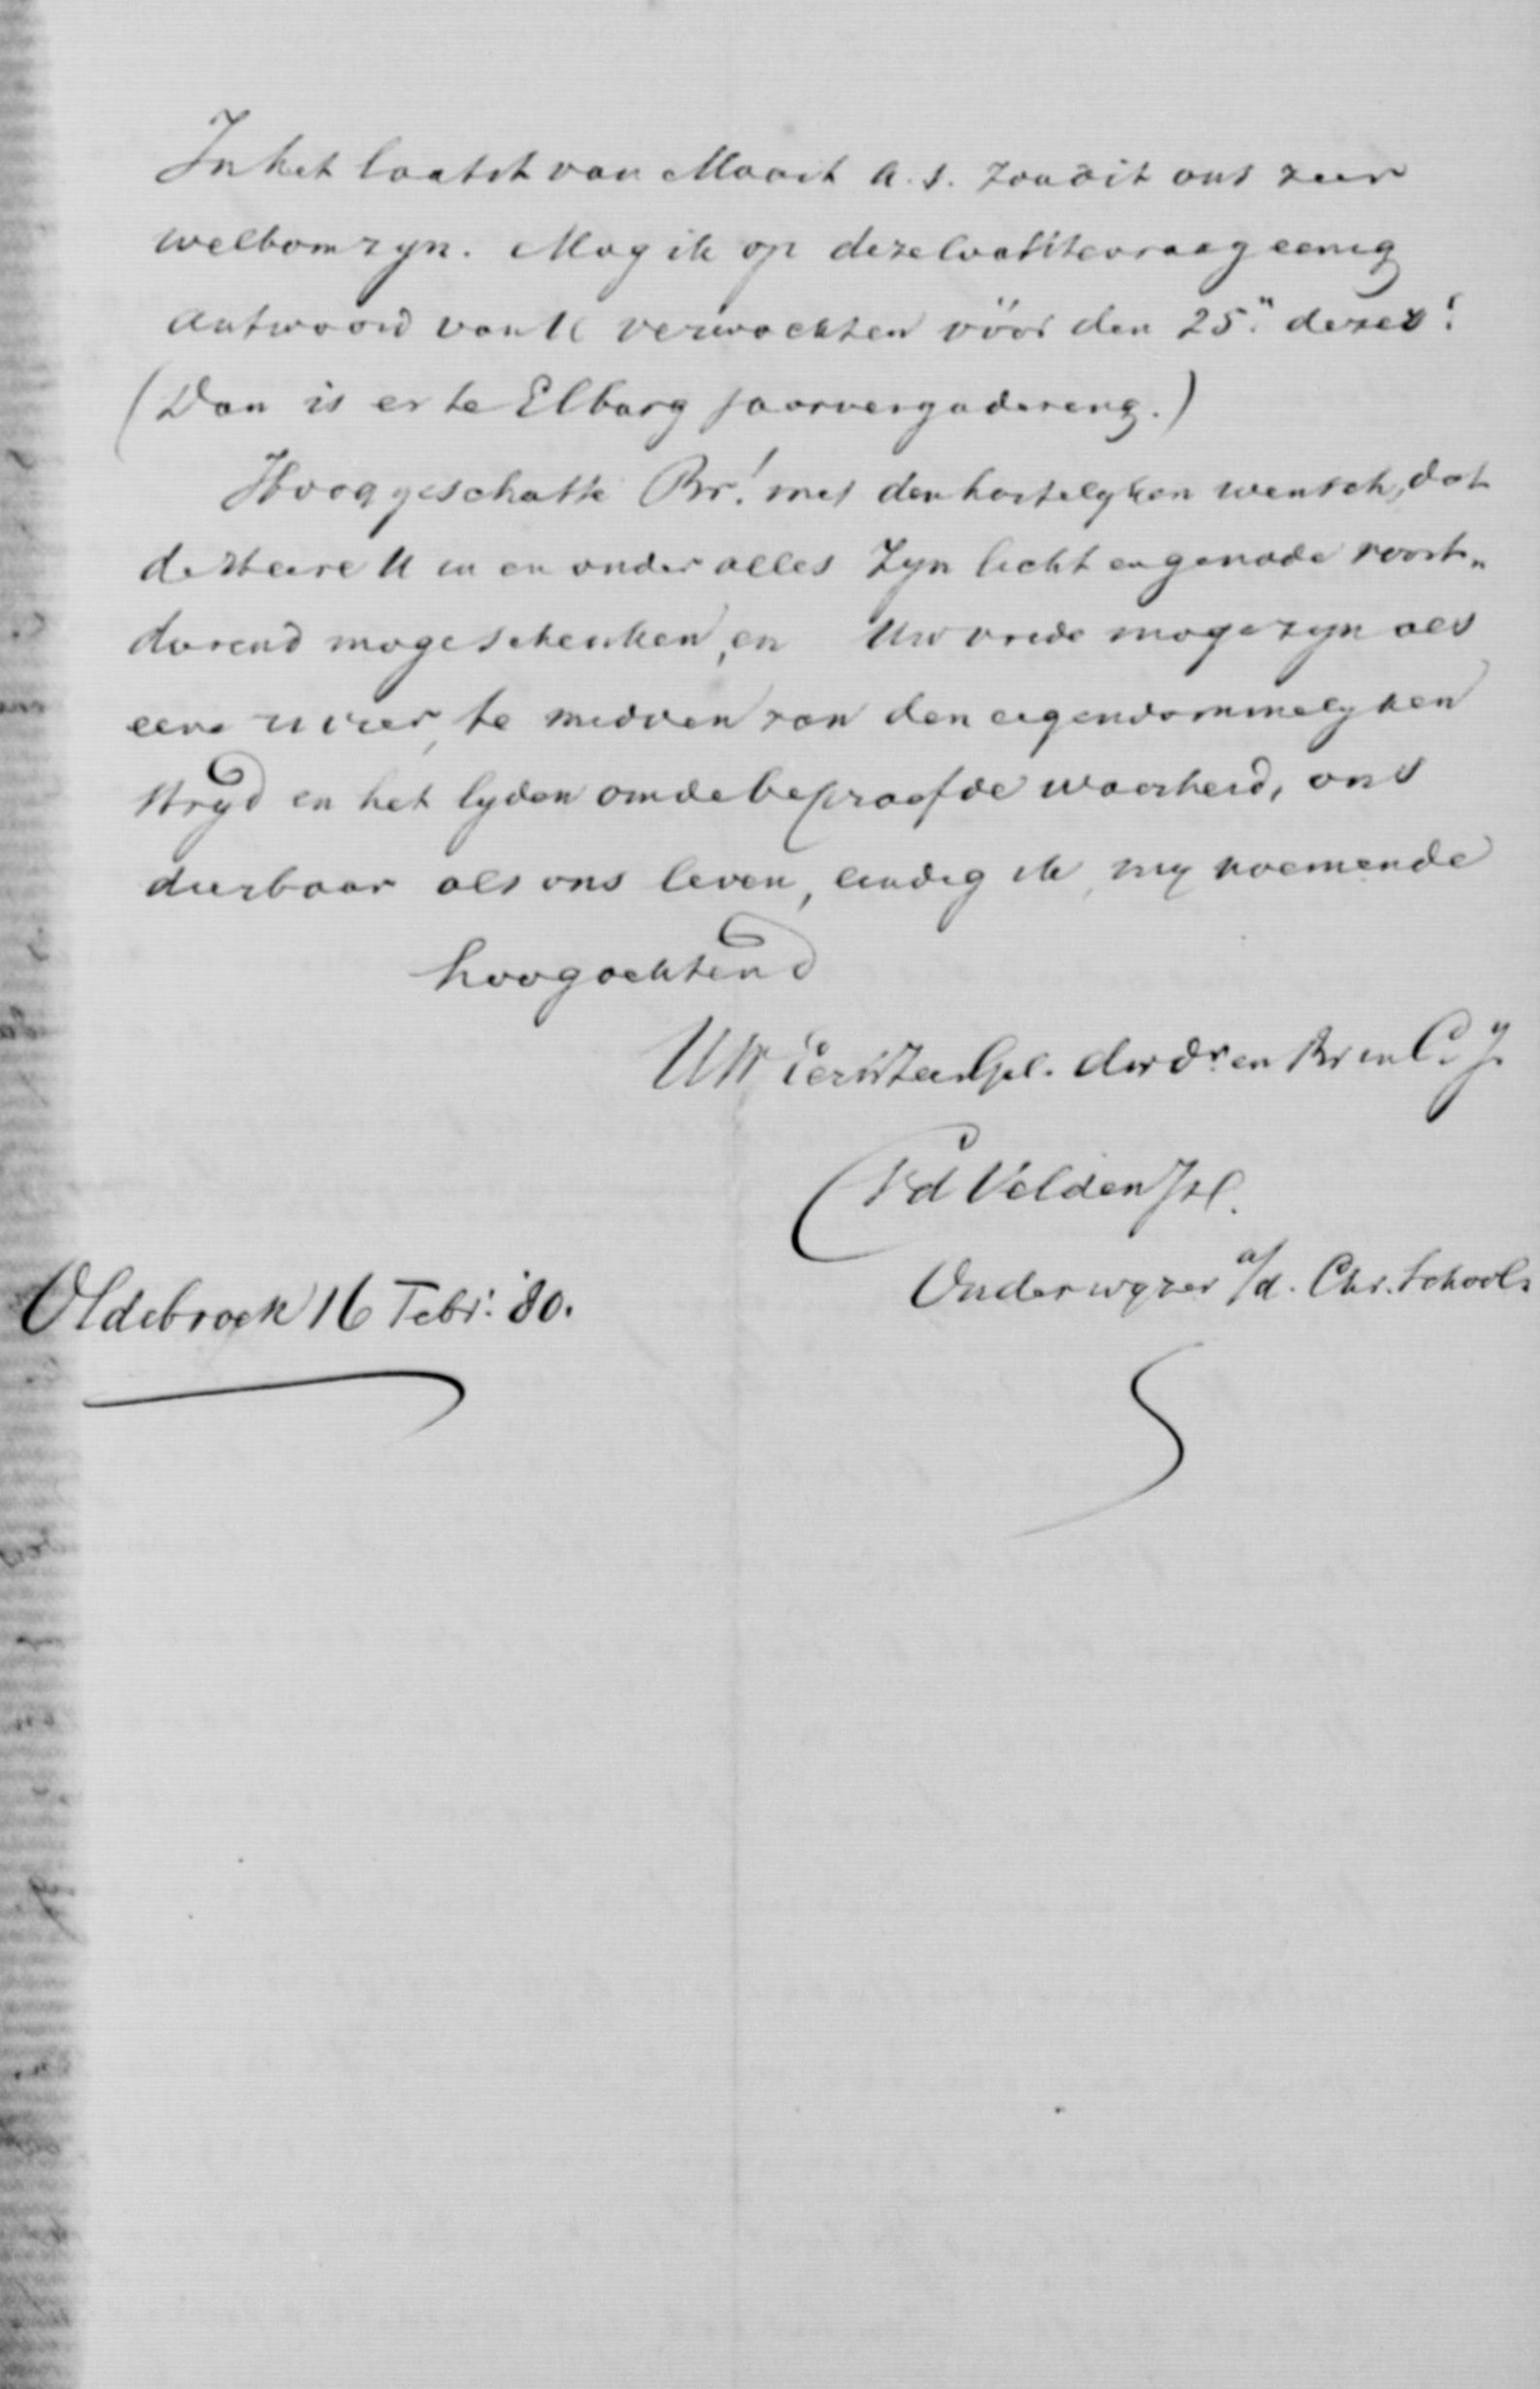 In het laatst van Maart a.s. zou dit ons zeer
welkom zyn. Mag ik op deze laatste vraag eenig
antwoord van U verwachten vóór den 25.n dezes?
(Dan is er te Elburg jaarvergadering.)
Hooggeschatte Br.! met den hartelyken wensch, dat
de Heere U in en onder alles Zyn licht en genade voort-
durend moge schenken, en Uw vrede moge zyn als
eene rivier, te midden van den eigendommelyken
stryd en het lyden om de beproefde waarheid, ons
dierbaar als ons leven, eindig ik, my noemende
hoogachtend
UW EerwZeerGel. dwdr. en Br in C. J.
vd Velden Jzl.
Onderwyzer a/d. Chr. School.
Oldebroek 16 Febr: '80.